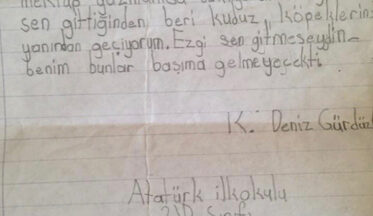 mektup
sen gittiğinden beri kuduz, köpeklerin
yanından geçiyorum. Ezgi sen gitmeseydin
benim bunlar başıma gelmeyecekti.
K. Deniz Gürdüz
Atatürk ilkokulu
2/D Sınıfı